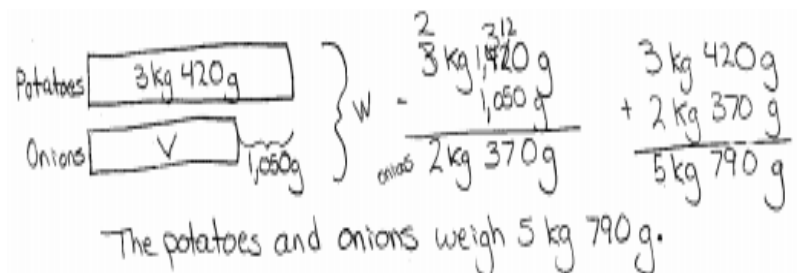 Potatoes 3 kg 420 g
Onions V
1,050 g
W
2 312
3 kg 1,420 g
- 1,050 g
onions 2 kg 370 g
3 kg 420 g
+ 2 kg 370 g
5 kg 790 g
The potatoes and onions weigh 5 kg 790 g.